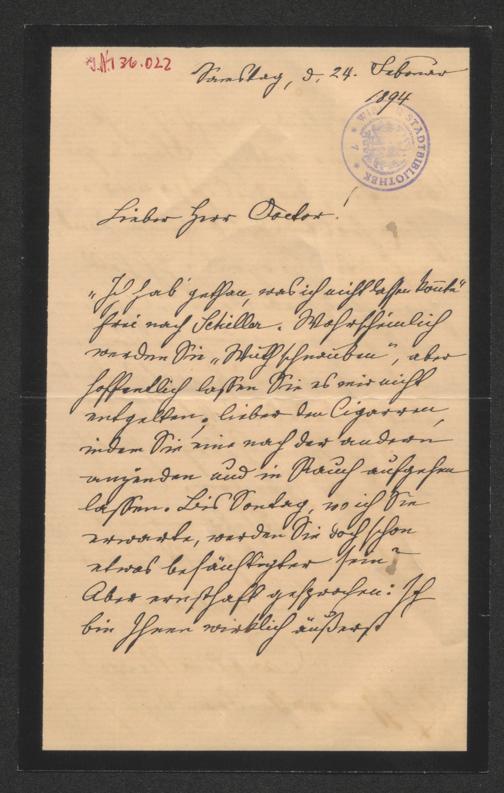 J.N. 136.022
Samstag, d. 24. Februar
1894
STADTBIBLIOTHEK
Lieber Herr Doctor!
"Ich hab' gethan, was ich nicht lassen konnte"
frei nach Schiller. Wahrscheinlich
werden Sie "Wuth schnauben", aber
hoffentlich lassen Sie es mir nicht
entgelten, lieber den Cigarren,
indem Sie eine nach der andern
anzünden und in Rauch aufgehen
lassen. Bis Sontag, wo ich Sie
erwarte, werden Sie doch schon
etwas besänftigter sein?
Aber ernsthaft gesprochen: Ich
bin Ihnen wirklich äußerst